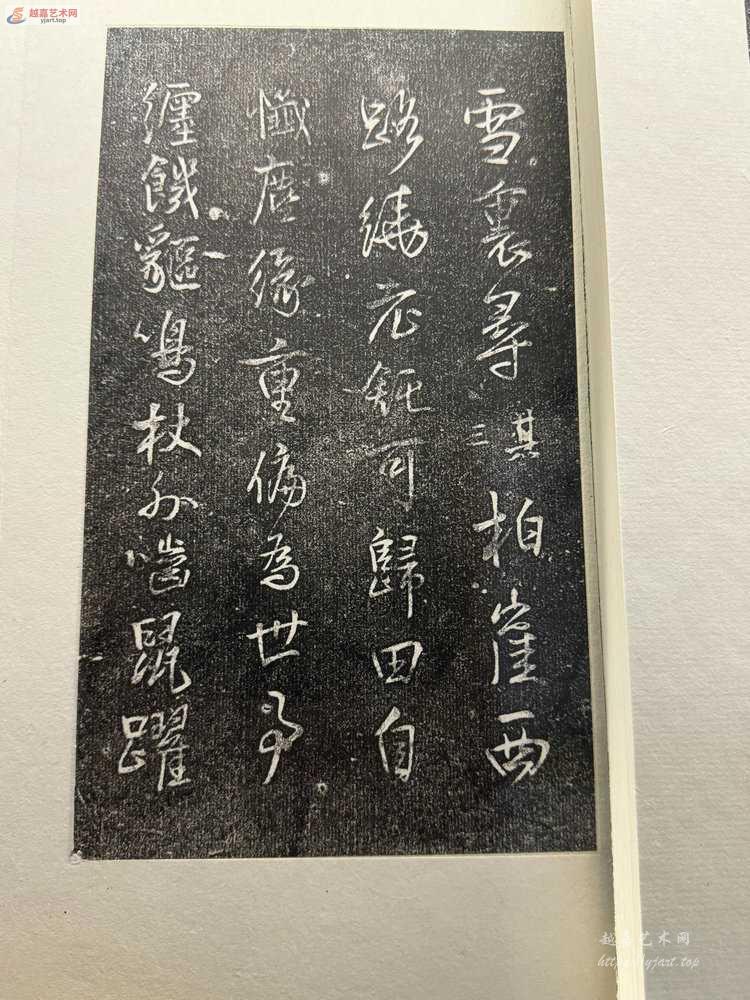 越嘉艺术网
yjart.top
雪裏尋 其三 柏崔西
路繞衣缽可歸田自
懺塵緣重偏為世事
纏饑貙鳴杖外嚙鼠躍
越嘉艺术网
https://yjart.top